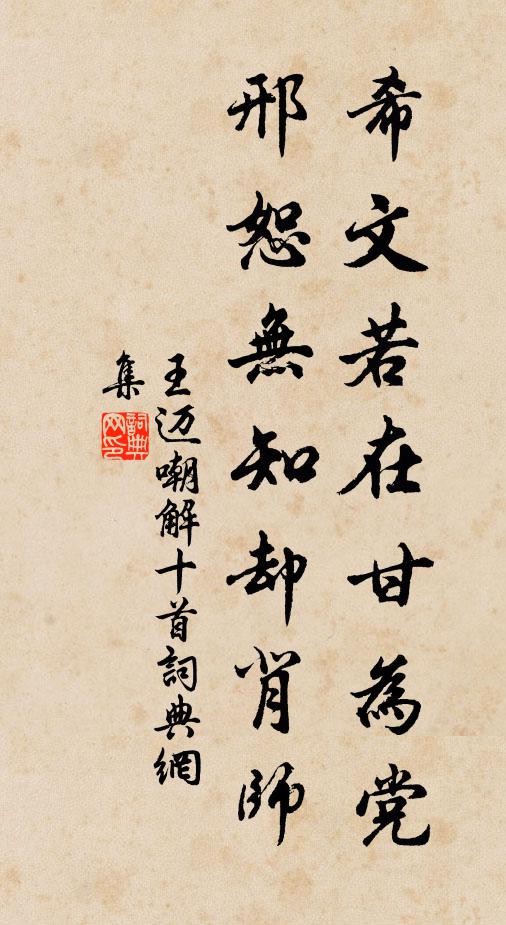 希文若在甘為党
邢恕無知却背師
王迈嘲解十首詞典網
集
詞典
网印